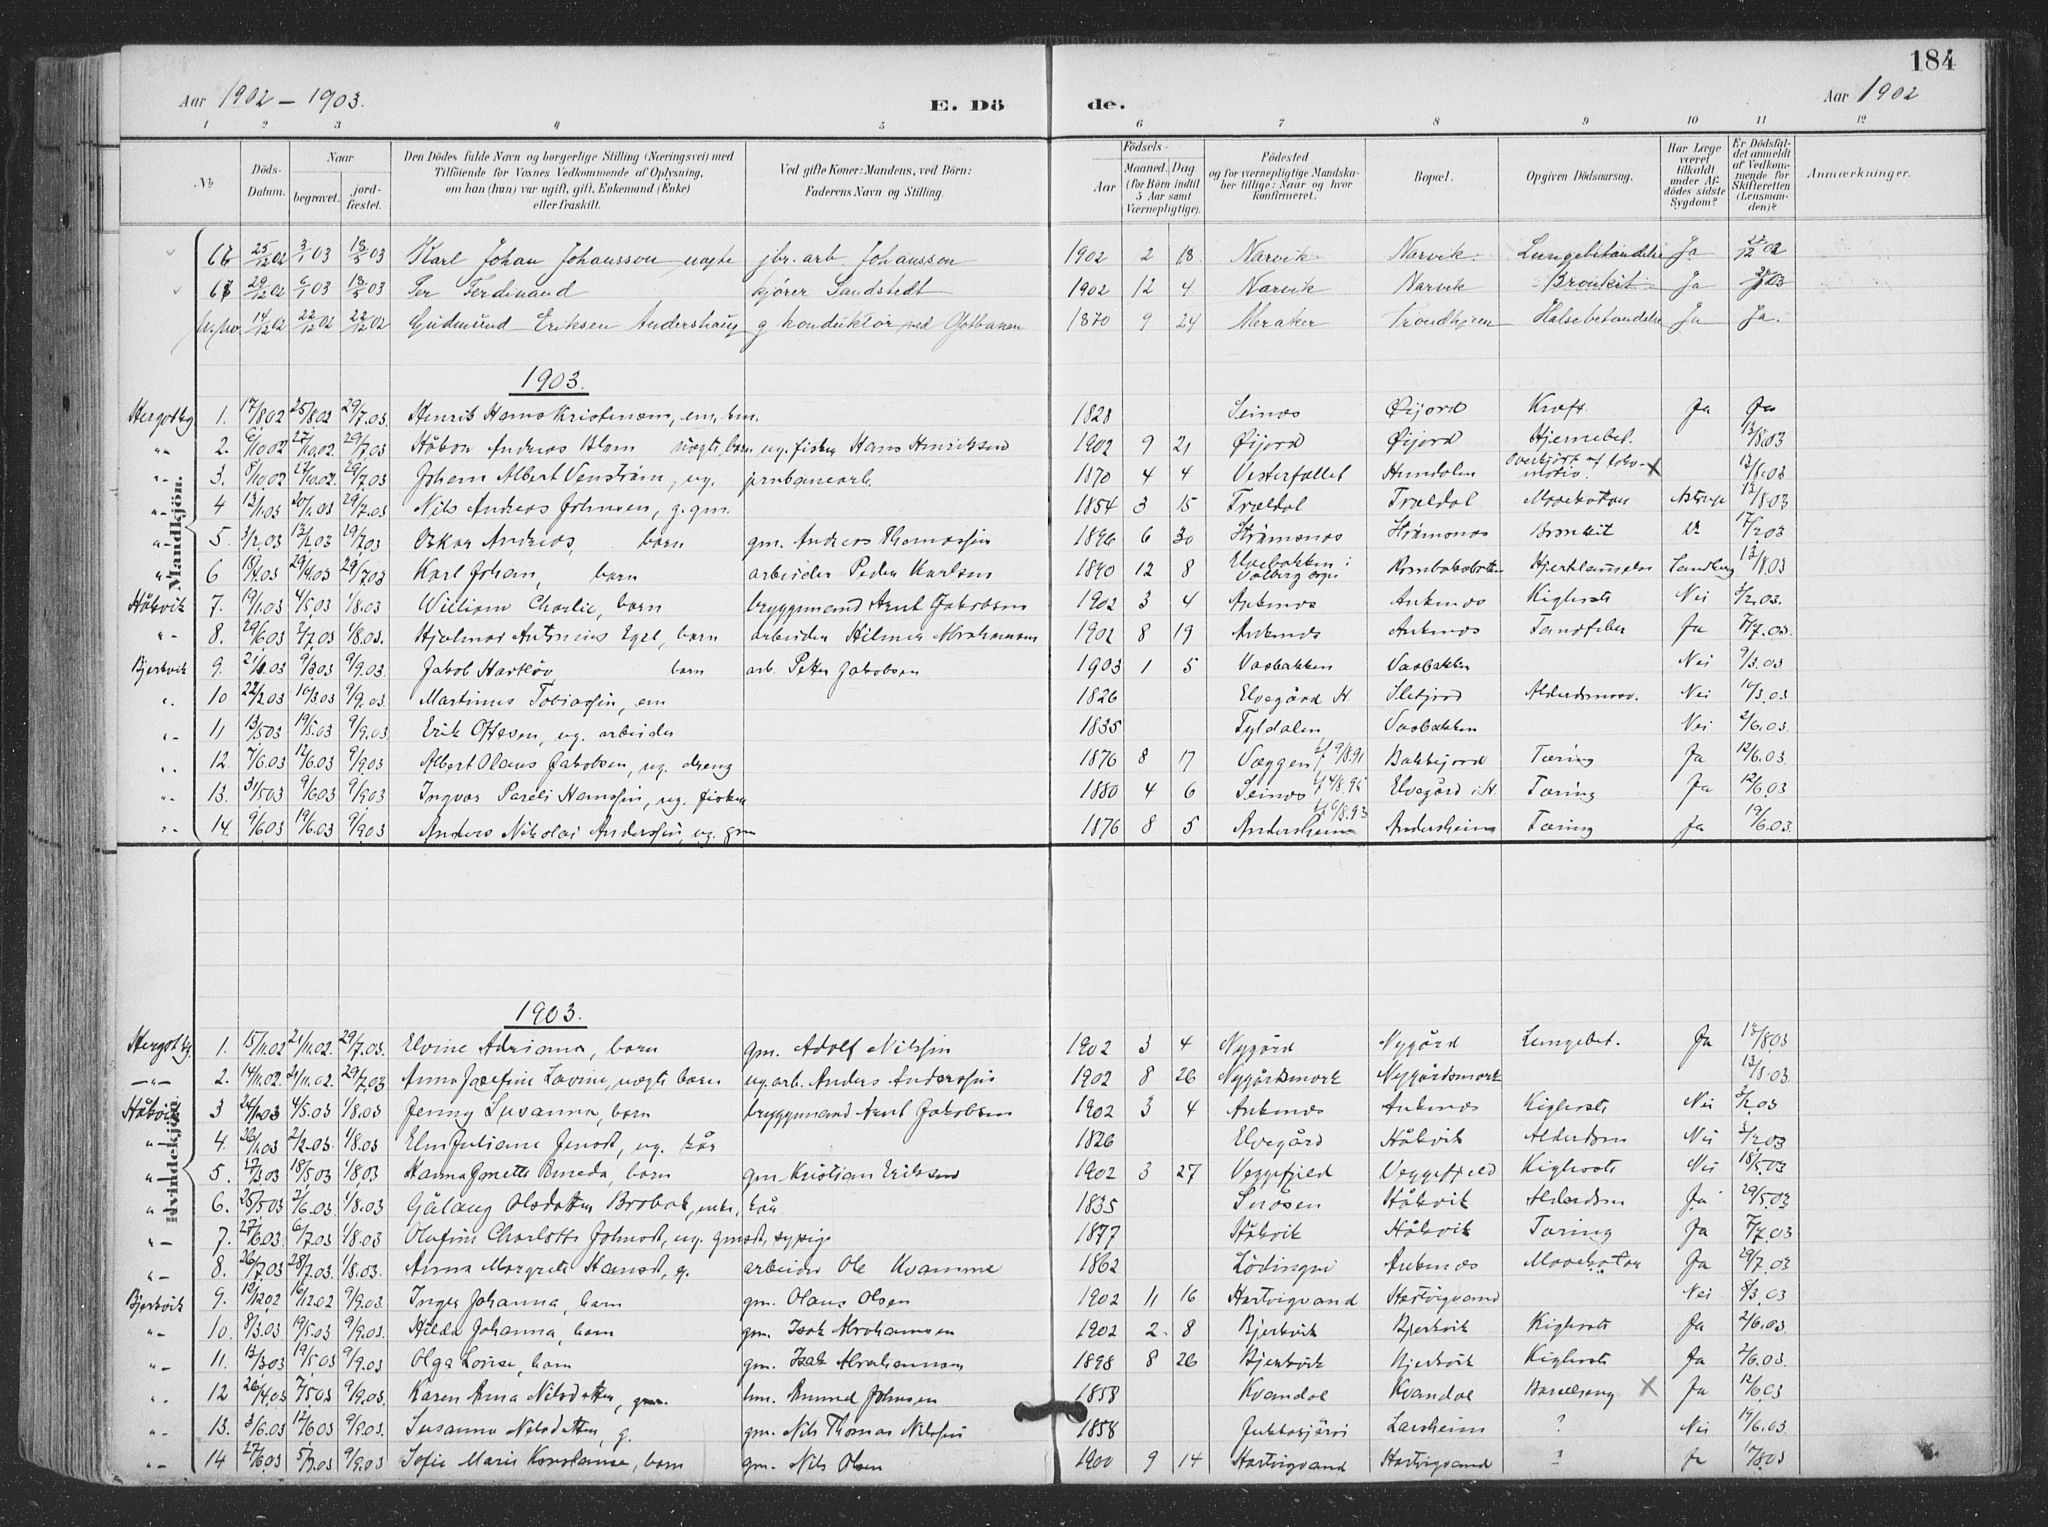 184
Aar 1902 – 1903. E. Dö de. Aar 1902
1 2 3 4 5 6 7 8 9 10 11 12
No. Döds-Datum. Naar begravet. jordfæstet. Den Dödes fulde Navn og borgerlige Stilling (Næringsvei) med Tilföiende for Voxnes Vedkommende af Oplysning, om han (hun) var ugift, gift, Enkemand (Enke) eller fraskilt. Ved gifte Koner: Mandens, ved Börn: Faderens Navn og Stilling. Födsels- Aar Maaned. Dag (for Börn indtil 5 Aar samt Værnepligtige). Födested og for værnepligtige Mandskaber tillige: Naar og hvor konfirmeret. Bopæl. Opgiven Dödsaarsag. Har Læge været tilkaldt under Afdödes sidste Sygdom? Er Dödsfaldet anmeldt af Vedkommende for Skifteretten (Lensmanden)? Anmærkninger.
Mandkjön.
25/12 02 3/1 03 18/5 03 Karl Johan Johansson uægte jbr. arb. Johansson 1902 2 18 Narvik Narvik Lungebetændelse Ja 27/12 02
29/12 02 6/1 03 18/5 03 Per Ferdinand kjörer Sandstedt 1902 12 4 Narvik Narvik Bronkit Ja
14/12 02 22/12 02 22/12 02 Gudmund Eriksen Andershaug g konduktör ved Ofotbanen 1870 9 24 Meraker Trondhjem Halsebetændelse Ja Ja.
1903.
1. 17/8 02 25/8 02 29/7.03 Henrik Hans Kristensen, em, 1828 Seines Øijord Kræft. Ja Ja
2. 27/10.02 29/7.03 Håkon Andreas Blom uægte, barn ug. fisker Hans Henriksen 1902 9 21 Øijord Øijord Hjernebet. 13/8.03
3. 8/10.02 27/10.02 29/7.03 Johan Albert Venström, ug. jernbanearb. 1870 4 4 Vesterfallet Hundalen Overkjört af lokomotiv. X 13/8.03
4 13/1.03 20/1.03 29/7.03 Nils Andreas Johnsen, g. gm. 1854 3 15 Trældal Trældal Astrup 13/8.03
5. 3/2.03 13/2.03 19/7.03 Oskar Andreas, barn gm. Andreas Thomassen 1896 6 30 Strömsnes Strömsnes Bronkit 17/2.03
6 18/4.03 29/4.03 29/7.03 Karl Johan, barn arbeider Peder Karlsen 1890 12 8 Elvebakken i Valberg sogn Rombaksbotten Sandberg 13/8.03
Håkvik 7. 19/1.03 4/5.03 1/8.03 William Charlie, barn bryggemand Arnt Jakobsen 1902 3 4 Ankenes Ankenes Kighoste Nei 3/2.03.
8. 29/6.03 2/7.03 1/8.03. Hjalmar Antonius Egel, barn arbeider Hilmer Abrahamsen 1902 8 19 Ankenes Ankenes Tandfeber Ja 7/7.03.
Bjerkvik 9. 9/3.03 9/9.03 Jakob Hartløv barn arb. Peter Jakobsen 1903 1 5 Vasbakken Vasbakken Nei 9/3.03
10 22/2.03 10/3.03 9/9.03 Martinus Tobiassen, em 1826 Elvegård H Alderdomssv. Nei
11 13/5 03 19/5.03 9/9.03 Erik Ottesen, ug. arbeider 1835 Tyldalen Vasbakken Nei 2/6.03.
12. 7/6.03 12/6.03 9/9.03 Albert Olaus Jakobsen, ug. dreng 1876 8 17 Væggen 9/8.91 Bakkejord Tæring Ja 12/6.03.
13. 31/5 03 9/6.03 9/9.03 Ingvar Pareli Hanssen, ug. fisker 1880 4 6 Seines 4/8.95 Elvegård i H. Tæring Ja 12/6.03
14. 9/6.03 19/6.03 9/9.03 Anders Nikolai Anderssen, ug. gm 1876 8 5 Andersheim 6/8.93 Andersheim Tæring Ja 19/6.03.
Kvindekjön.
1903.
1. 15/11.02 21/11.02. 29/7.03. Elvine Adriana, barn gm. Adolf Nilssen 1902 3 4 Nygård Nygård Lungebet. Ja 13/8.03
2. 14/11.02. 21/11.02. 29/7.03 Anna Josefine Lovine, uægte barn ug. arb. Anders Anderssen 1902 8 26 Nygårdsmark Nygårdsmark 13/8.03.
Håkvik 3 24/1.03 4/5.03 1/8.03 Jenny Susanna, barn bryggemand Arnt Jakobsen 1902 3 4 Ankenes Ankenes Kighoste Nei 3/2.03
4. 26/1.03 2/2.03 1/8.03 Elen Juliane Jensd, ug. kår 1826 Elvegård Håkvik Alderdom Nei 3/2.03
5. 17/3.03 18/5.03 1/8.03 Hanna Jonette Ameda, barn gm. Kristian Eriksen 1902 3 27 Veggefjeld Veggefjeld Kighoste Nei 18/5.03
6. 25/5 03 2/6.03 1/8.03 Gålaug Olsdatter Brobak, enke, kår 1835 Snåsen Håkvik Alderdom Ja 29/5.03
7. 27/6.03 6/7.03 1/8.03 Olufine Charlotte Johnsd, ug. gmsd, sypige 1877 Håkvik Håkvik Tæring Ja 7/7.03
8. 26/7.03 28/7.03 1/8.03. Anna Margrete Hansd, g. arbeider Ole Kvamme 1862 Lödingen Ankenes Mavekatar Ja 29/7.03
Bjerkvik 9. 12/12 02 16/12.02 9/9.03. Inger Johanna, barn gm. Olaus Olsen 1902 11 16 Hartvigvand Hartvigvand Nei 8/3.03
10. 8/3.03 19/5.03 9/9.03. Hilda Johanna, barn gm. Isak Abrahamsen 1902 2 8 Bjerkvik Bjerkvik Kighoste Ja 2/6.03
11. 13/3.03 19/5.03 9/9.03 Olga Lovise, barn gm. Isak Abrahamsen 1898 8 26 Bjerkvik Bjerkvik Kighoste Ja 2/6.03.
12 26/4.03 7/5.03 9/9.03 Karen Anna Nilsdatter, gm. Amund Johnsen 1858 Kvandal Kvandal Barselseng X Ja 12/6.03
13. 3/6.03 12/6.03 9/9.03 Susanna Nilsdatter, g. gm. Nils Thomas Nilssen 1858 Jukkasjärvi Larsheim ? Nei 19/6.03.
14 27/6.03 5/7.03 9/9.03 Sofie Marie Konstanse, barn gm. Nils Olsen 1900 9 14 Hartvigvand Hartvigvand ? Ja 17/8.03